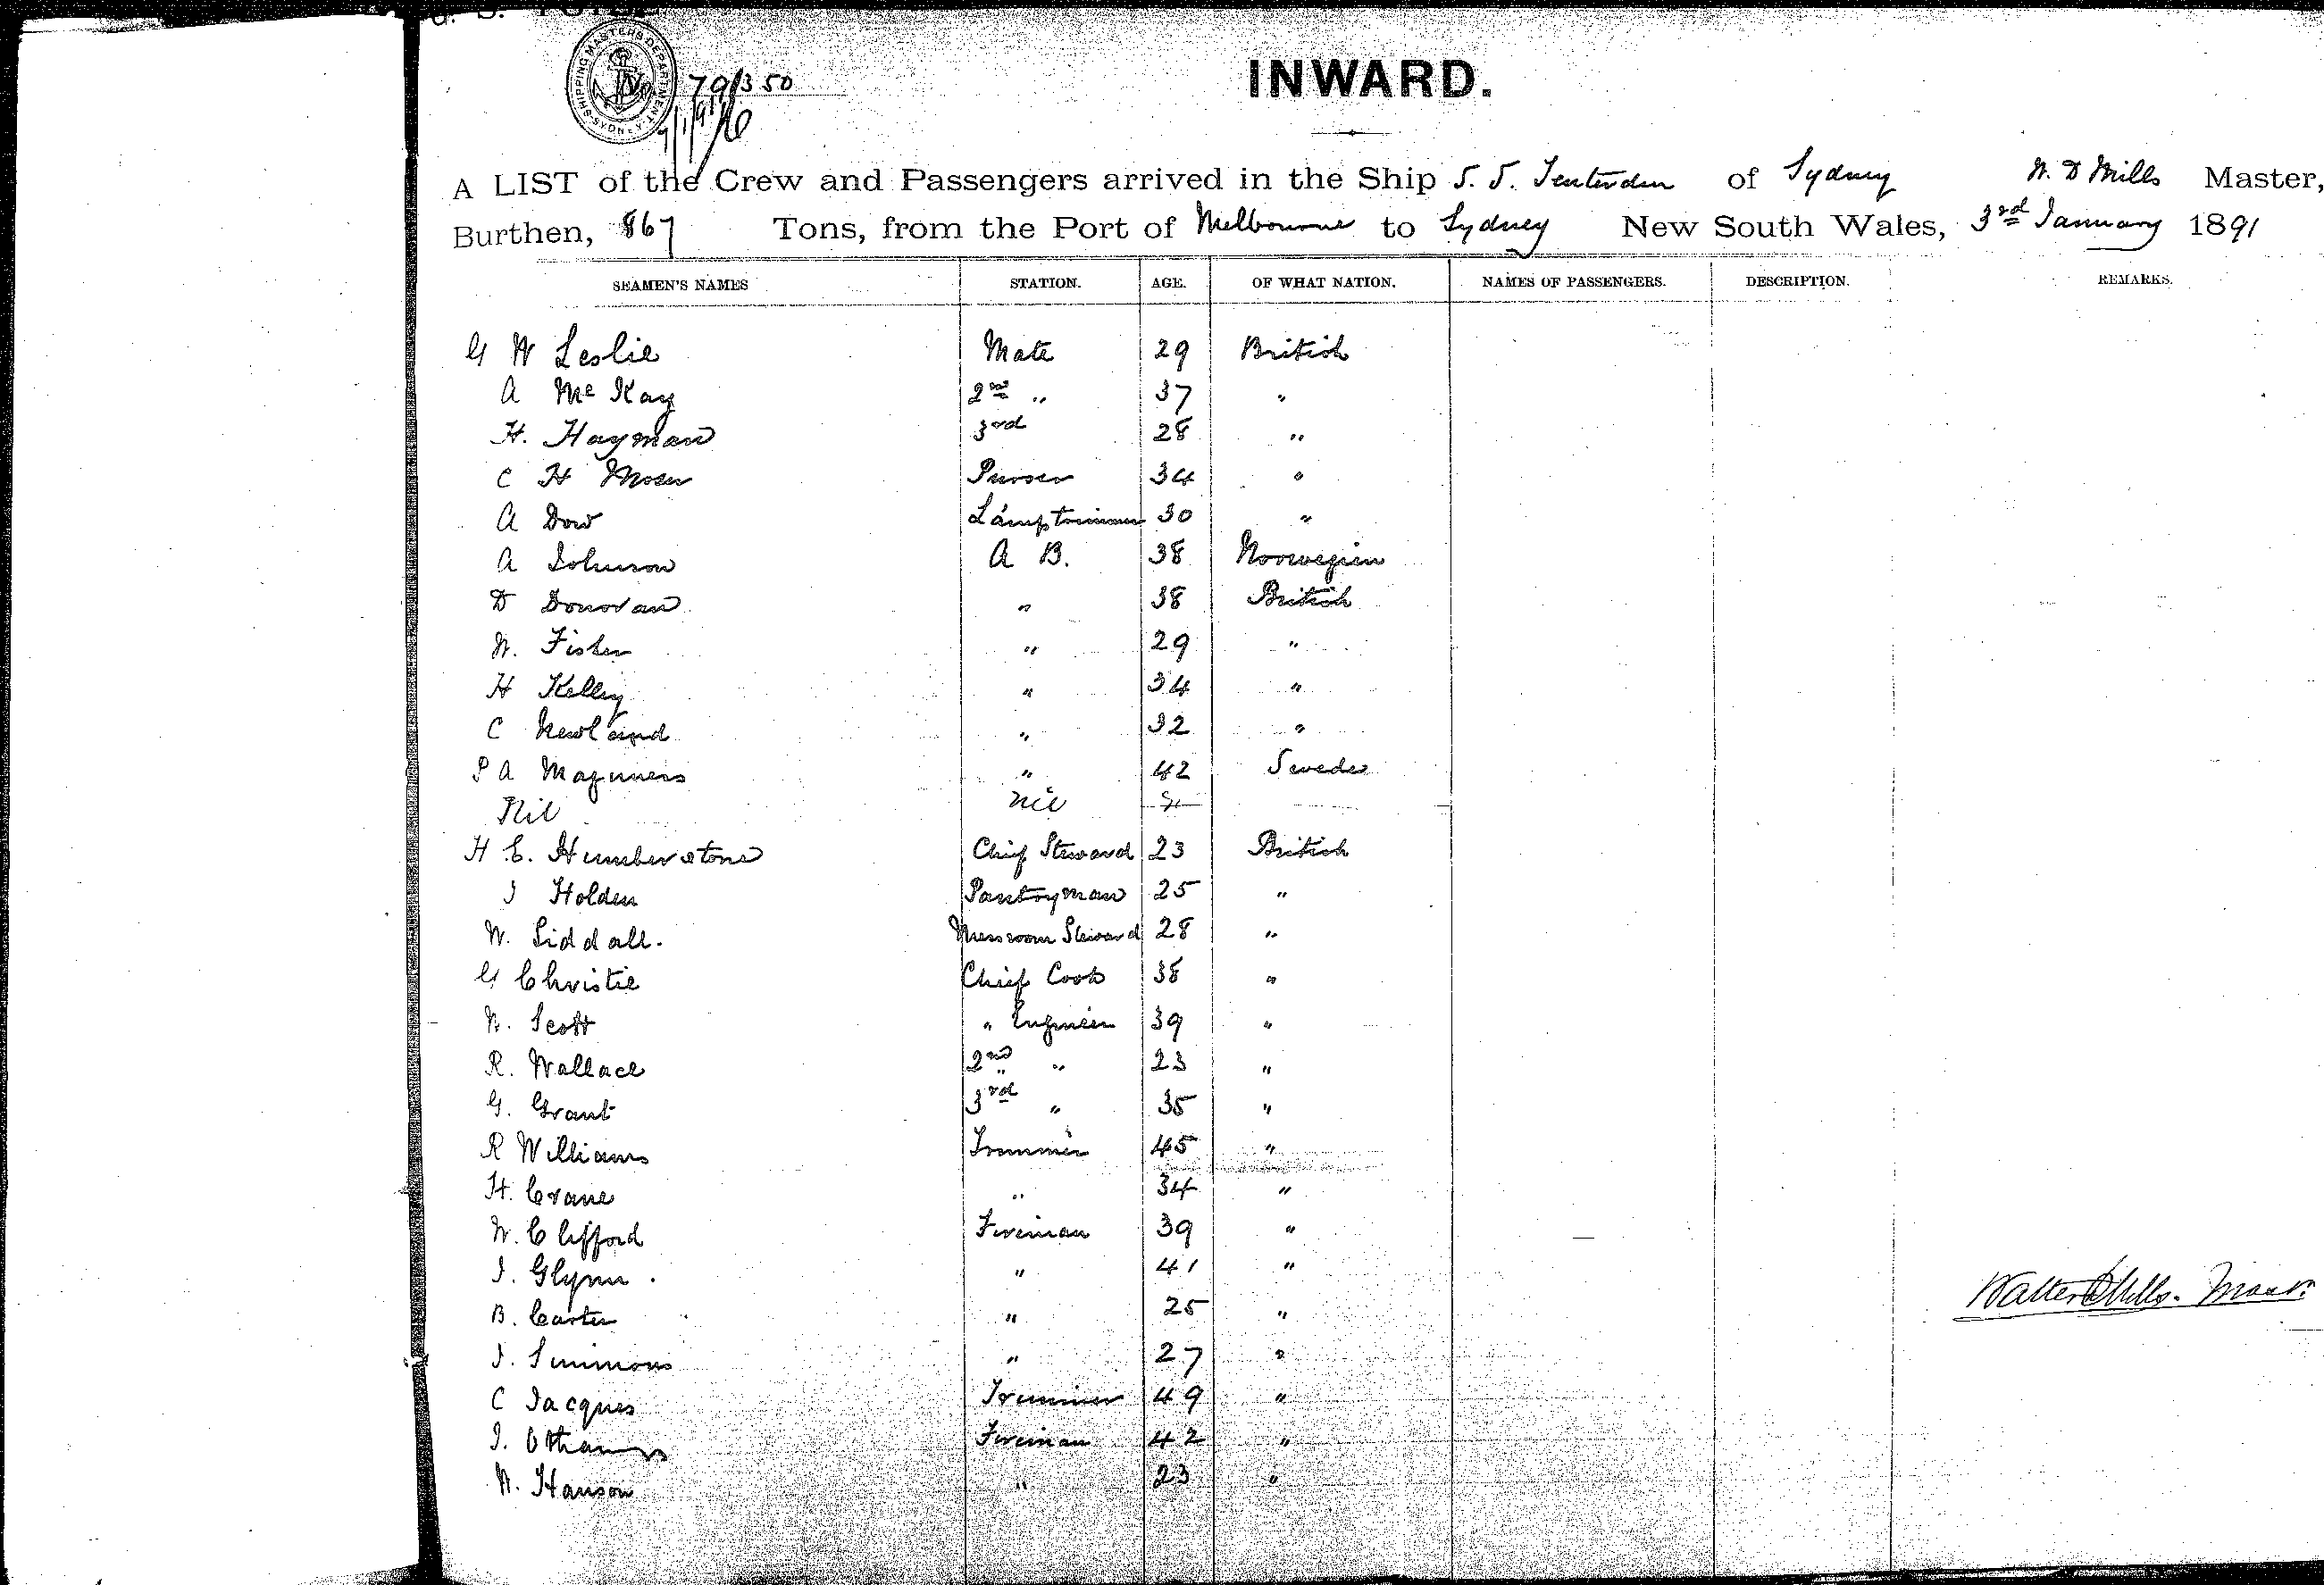 SHIPPING MASTERS DEPARTMENT SYDNEY
79/350
INWARD.
A LIST of the Crew and Passengers arrived in the Ship S. S. Tenterden of Sydney W. D Mills Master,
Burthen, 867 Tons, from the Port of Melbourne to Sydney New South Wales, 3rd January 1891
SEAMEN'S NAMES STATION. AGE. OF WHAT NATION. NAMES OF PASSENGERS. DESCRIPTION. REMARKS.
G W Leslie Mate 29 British
A McKay 2nd " 37 "
H. Hayman 3rd 28 "
C H Moser Purser 34 "
A Dow Lamptrimmer 30 "
A Johnson A B. 38 Norwegian
D Donovan " 38 British
W. Fisher " 29 "
H Kelley " 34 "
C Newland " 32 "
P A " 42 Swede
Nil nil
H E. Humberstone Chief Steward 23 British
J Holden Pantryman 25 "
W. Siddall. Messroom Steward 28 "
G Christie Chief Cook 38 "
W. Scott " Engineer 39 "
R. Wallace 2nd " 23 "
G. Grant 3rd " 35 "
R Williams Trimmer 45 "
H. Crane " 34 "
W. Clifford Fireman 39 "
J. Glynn. " 41 "
B. Carter " 25 "
J. Simmons " 27 "
C Jacques Trimmer 49 "
J. Fireman 42 "
W. Hanson " 23 "
Walter D Mills. Master